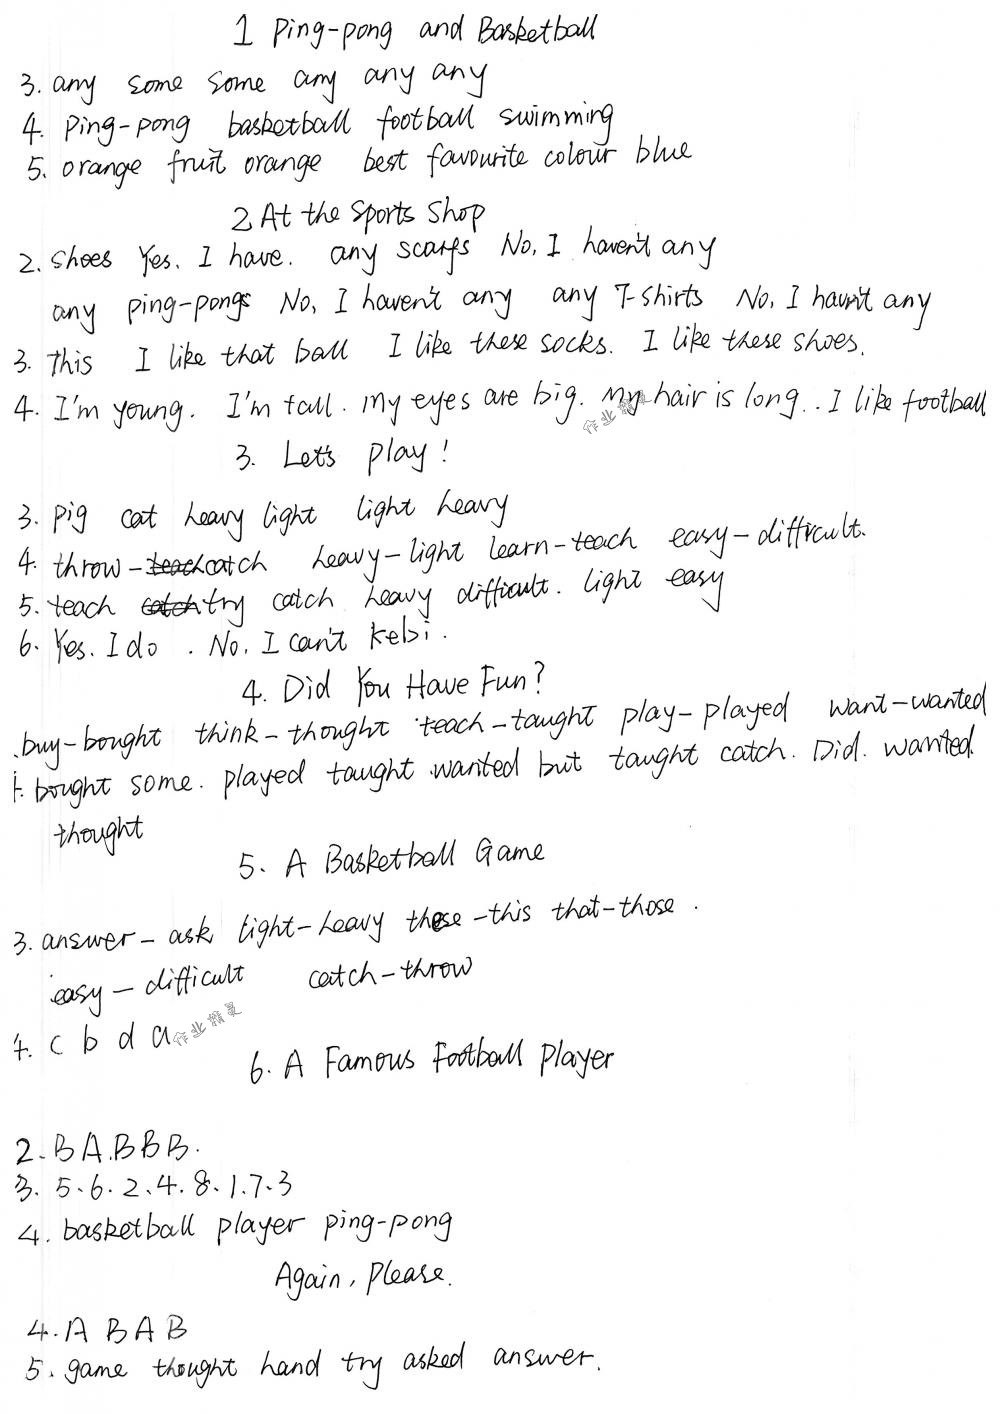 1 Ping-pong and Basketball
3. any some some any any any
4. Ping-pong basketball football swimming
5. orange fruit orange best favourite colour blue
2. At the Sports Shop
2. Shoes Yes. I have. any scarfs No, I haven't any
any ping-pongs No, I haven't any any T-shirts No, I havn't any
3. This I like that ball I like these socks. I like these shoes.
4. I'm young. I'm tall. My eyes are big. My hair is long.. I like football
作业精灵
3. Let's play!
3. pig cat heavy light light heavy
4. throw-teach catch heavy-light learn-teach easy-difficult.
5. teach catch try catch heavy difficult. light easy
6. Yes. I do. No, I can't kebi.
4. Did You Have Fun?
buy-bought think-thought teach-taught play-played want-wanted
bought some. played taught wanted but taught catch. Did. wanted.
thought
5. A Basketball Game
3. answer-ask light-heavy these-this that-those.
easy-difficult catch-throw
4. c b d a
作业精灵
6. A Famous Football Player
2. B A. B B B.
3. 5.6.2.4.8.1.7.3
4. basketball player ping-pong
Again, Please.
4. A B A B
5. game thought hand try asked answer.